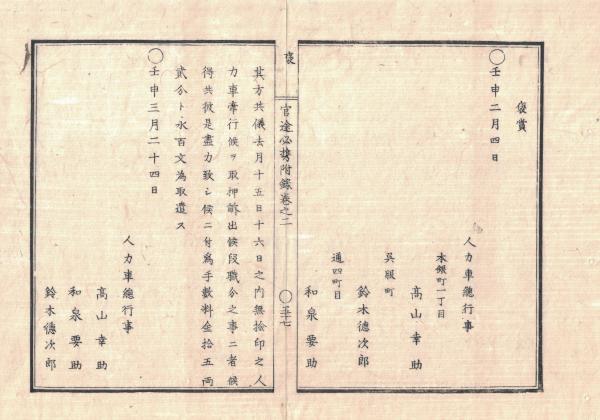 褒賞
○壬申二月四日
人力車總行事
本銀町一丁目
高山幸助
呉服町
鈴木德次郎
通四町目
和泉要助
官途必携附錄卷之二
○五十七
其方共儀去月十五日十六日之內無撿印之人
力車牽行候ヲ取押訴出候段職分之事ニ者候
得共彼是盡力致シ候ニ付爲手數料金拾五兩
貳分ト永百文為取遣ス
○壬申三月二十四日
人力車總行事
高山幸助
和泉要助
鈴木德次郎